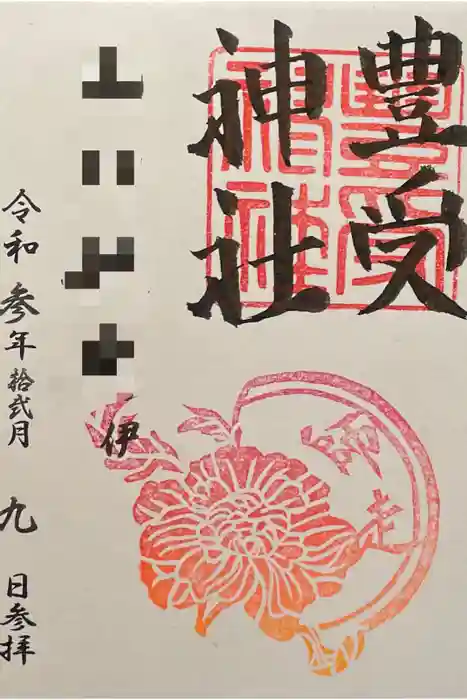 豊受
神社
師走
伊
令和参年拾弐月九日参拝